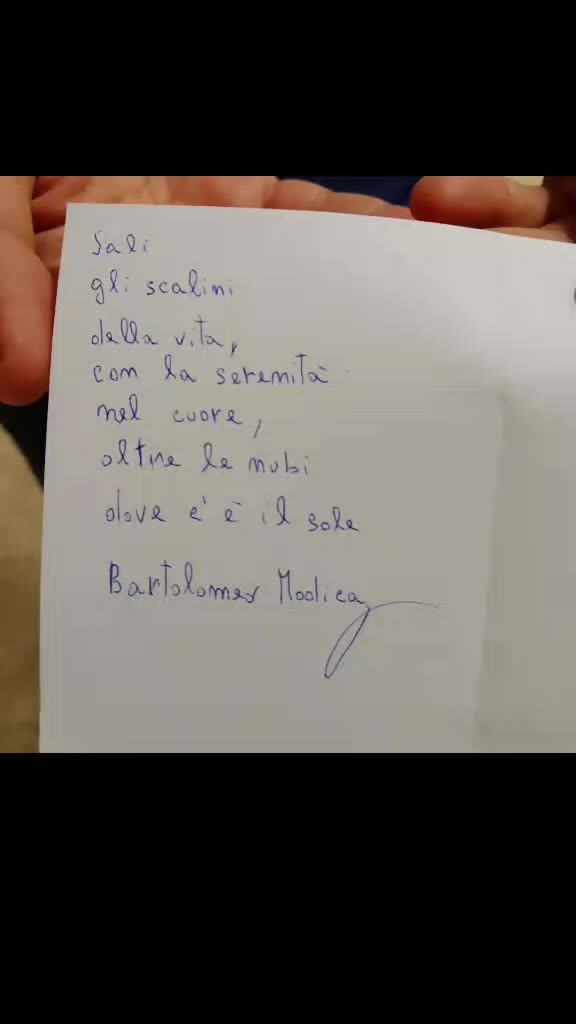 Sali
gli scalini
della vita,
con la serenità
nel cuore,
oltre le nubi
dove c'è il sole
Bartolomeo Modica